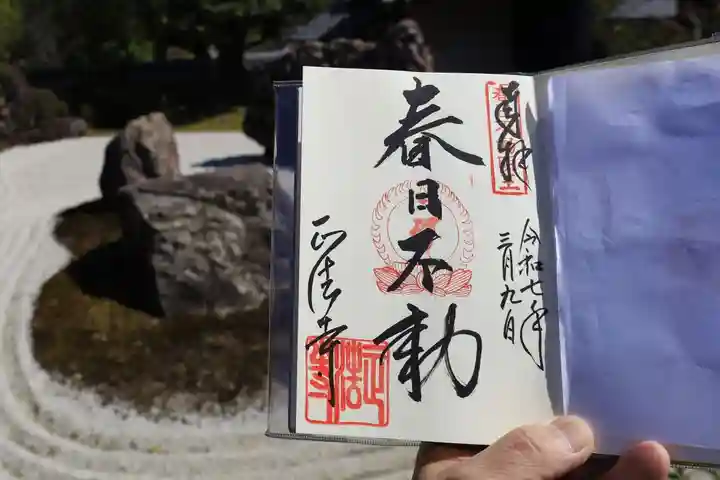 奉拝
令和七年
三月九日
春日不動
正法寺